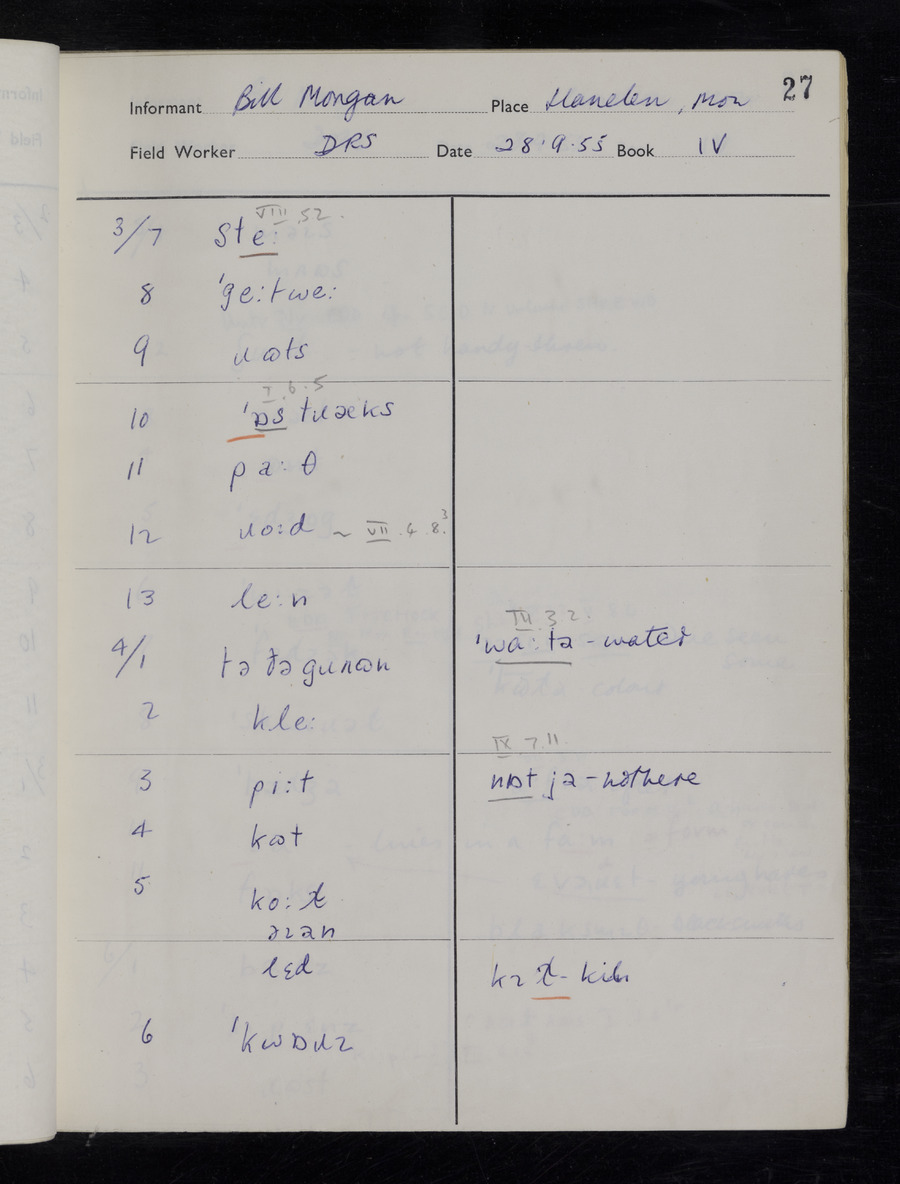 27
Informant Bill Morgan Place Llanelen, Mon
Field Worker DRS Date 28.9.55 Book IV
VIII.52.
3/7 ste:
8 'ge:twe:
9 ɹɷts
I.6.5
10 'ɒs tɹæks
11 pa:θ
12 ɹo:d ~ VII.4.8.3
13 le:n
III.3.2.
'wa:tə - water
4/1 tə ðə gɹɷən
2 kle:
IX 7.11.
3 pi:t nɒt jə - not here
4 kɷt
5 ko:ɫ
lɛd kɪɫ - kiln
6 'kwɒɹɪ